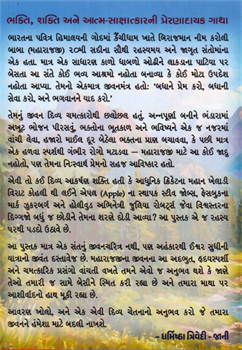 ભક્તિ, શક્તિ અને આત્મ-સાક્ષાત્કારની પ્રેરણાદાયક ગાથા
ભારતના પવિત્ર હિમાલયની ગોદમાં કૈંચીધામ ખાતે બિરાજમાન નીમ કરોલી
બાબા (મહારાજજી) ૨૦મી સદીના સૌથી રહસ્યમય અને જાગૃત સંતોમાંના
એક હતા. માત્ર એક સાધારણ કાળો ધાબળો ઓઢીને લાકડાના પાટિયા પર
બેસતા આ સંતે કોઈ ભવ્ય આશ્રમો નહોતા બનાવ્યા કે કોઈ મોટા ઉપદેશ
નહોતા આપ્યા. તેમનો એકમાત્ર જીવનમંત્ર હતો: 'બધાને પ્રેમ કરો, બધાની
સેવા કરો, અને ભગવાનને યાદ કરો.'
તેમનું જીવન દિવ્ય ચમત્કારોથી છલોછલ હતું. અન્નપૂર્ણા બનીને ભંડારામાં
અખૂટ ભોજન પીરસવું, ભક્તોના ભૂતકાળ અને ભવિષ્યને એક જ નજરમાં
વાંચી લેવા, હજારો માઈલ દૂર બેઠેલા ભક્તના પ્રાણ બચાવવા, કે પછી માત્ર
એક હળવા સ્પર્શથી ગંભીર રોગો મટાડવા – મહારાજજી માટે આ કોઈ જાદુ
નહોતો, પણ તેમના નિઃસ્વાર્થ પ્રેમનો સહજ આવિષ્કાર હતો.
એવી તો કઈ દિવ્ય આકર્ષણ શક્તિ હતી કે આધુનિક ક્રિકેટના મહાન ખેલાડી
વિરાટ કોહલી થી લઈને એપલ (Apple) ના સ્થાપક સ્ટીવ જોબ્સ, ફેસબુકના
માર્ક ઝુકરબર્ગ અને હોલીવુડ અભિનેત્રી જુલિયા રોબર્ટ્સ જેવા વિશ્વસ્તરના
દિગ્ગજો બધું જ છોડીને તેમના શરણે દોડી આવ્યા? આ પુસ્તક એ જ રહસ્ય
પરથી પડદો ઉઠાવે છે.
આ પુસ્તક માત્ર એક સંતનું જીવનચરિત્ર નથી, પણ અહંકારથી ઈશ્વર સુધીની
યાત્રાનો જીવંત દસ્તાવેજ છે. મહારાજજીના જીવનના આ અદભુત, હૃદયસ્પર્શી
અને ચમત્કારિક પ્રસંગો વાંચતી વખતે તમને એવો જ અનુભવ થશે કે જાણે
તેઓ તમારી જ સામે બેસીને સ્મિત કરી રહ્યા છે અને તમારા માથા પર
આશીર્વાદનો હાથ મૂકી રહ્યા છે.
આવરણ ખોલો, અને એક એવી દિવ્ય ચેતનાનો અનુભવ કરો જે તમારા
જીવનને હંમેશા માટે બદલી નાખશે.
- ધર્મિષ્ઠા ત્રિવેદી - જાની